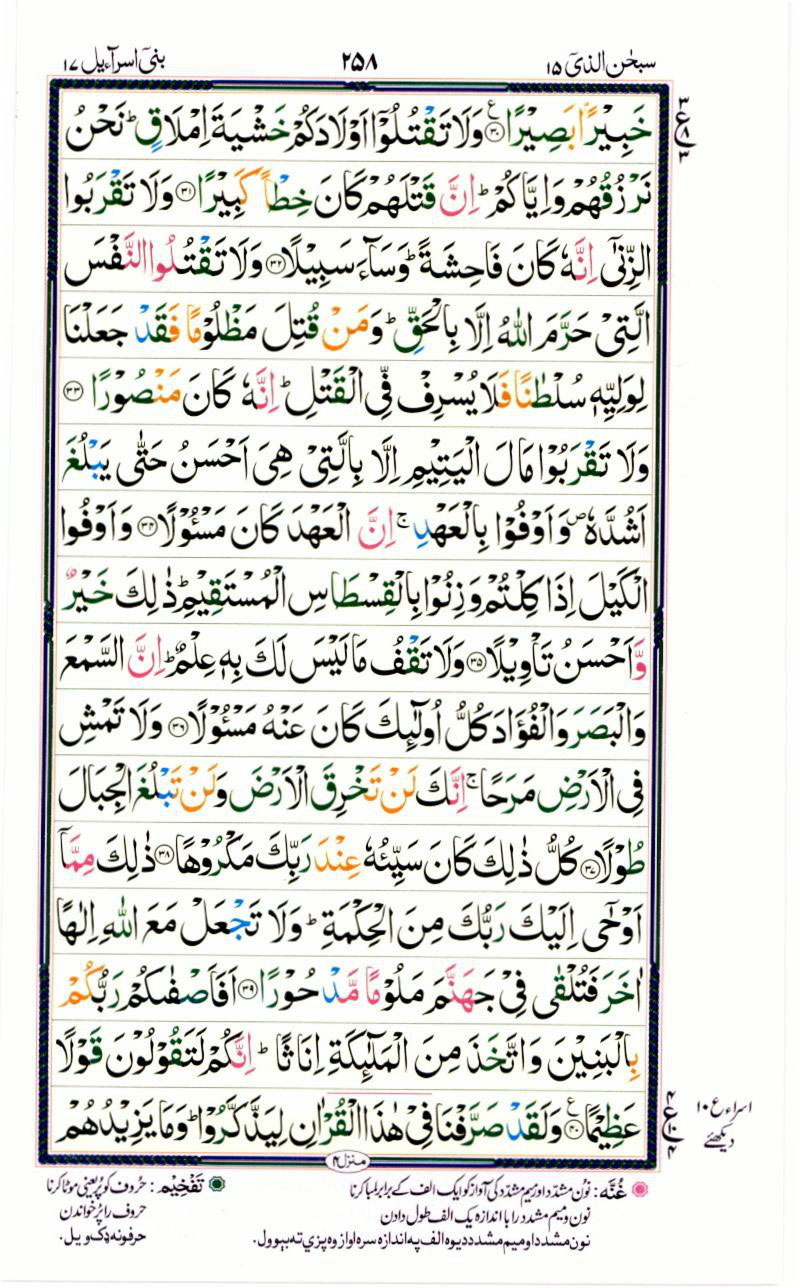 سبحٰن الذیٓ ۱۵
۲۵۸
بنیٓ اسرآءیل ۱۷
خَبِيْرًۢا بَصِيْرًا ۧ﴿۳۰﴾ وَلَا تَقْتُلُوْۤا اَوْلَادَكُمْ خَشْيَةَ اِمْلَاقٍ ؕ نَحْنُ
نَرْزُقُهُمْ وَاِيَّاكُمْ ؕ اِنَّ قَتْلَهُمْ كَانَ خِطْاً كَبِيْرًا ﴿۳۱﴾ وَلَا تَقْرَبُوا
الزِّنٰٓى اِنَّهٗ كَانَ فَاحِشَةً ؕ وَسَآءَ سَبِيْلًا ﴿۳۲﴾ وَلَا تَقْتُلُوا النَّفْسَ
الَّتِيْ حَرَّمَ اللّٰهُ اِلَّا بِالْحَقِّ ؕ وَمَنْ قُتِلَ مَظْلُوْمًا فَقَدْ جَعَلْنَا
لِوَلِيِّهٖ سُلْطٰنًا فَلَا يُسْرِفْ فِّي الْقَتْلِ ؕ اِنَّهٗ كَانَ مَنْصُوْرًا ﴿۳۳﴾
وَلَا تَقْرَبُوْا مَالَ الْيَتِيْمِ اِلَّا بِالَّتِيْ هِيَ اَحْسَنُ حَتّٰى يَبْلُغَ
اَشُدَّهٗ ۪ وَاَوْفُوْا بِالْعَهْدِ ۚ اِنَّ الْعَهْدَ كَانَ مَسْـُٔوْلًا ﴿۳۴﴾ وَاَوْفُوا
الْكَيْلَ اِذَا كِلْتُمْ وَزِنُوْا بِالْقِسْطَاسِ الْمُسْتَقِيْمِ ؕ ذٰلِكَ خَيْرٌ
وَّاَحْسَنُ تَاْوِيْلًا ﴿۳۵﴾ وَلَا تَقْفُ مَا لَيْسَ لَكَ بِهٖ عِلْمٌ ؕ اِنَّ السَّمْعَ
وَالْبَصَرَ وَالْفُؤَادَ كُلُّ اُولٰٓئِكَ كَانَ عَنْهُ مَسْـُٔوْلًا ﴿۳۶﴾ وَلَا تَمْشِ
فِي الْاَرْضِ مَرَحًا ۚ اِنَّكَ لَنْ تَخْرِقَ الْاَرْضَ وَلَنْ تَبْلُغَ الْجِبَالَ
طُوْلًا ﴿۳۷﴾ كُلُّ ذٰلِكَ كَانَ سَيِّئُهٗ عِنْدَ رَبِّكَ مَكْرُوْهًا ﴿۳۸﴾ ذٰلِكَ مِمَّاۤ
اَوْحٰۤى اِلَيْكَ رَبُّكَ مِنَ الْحِكْمَةِ ؕ وَلَا تَجْعَلْ مَعَ اللّٰهِ اِلٰهًا
اٰخَرَ فَتُلْقٰى فِيْ جَهَنَّمَ مَلُوْمًا مَّدْحُوْرًا ﴿۳۹﴾ اَفَاَصْفٰىكُمْ رَبُّكُمْ
بِالْبَنِيْنَ وَاتَّخَذَ مِنَ الْمَلٰٓئِكَةِ اِنَاثًا ؕ اِنَّكُمْ لَتَقُوْلُوْنَ قَوْلًا
عَظِيْمًا ۧ﴿۴۰﴾ وَلَقَدْ صَرَّفْنَا فِيْ هٰذَا الْقُرْاٰنِ لِيَذَّكَّرُوْا ؕ وَمَا يَزِيْدُهُمْ
۳ ع ۸ ۳
۴ ع ۱۰ ۴
اسراء ع ۱۰
دیکھئے
منزل ۴
غُنَّه : نُون مشدّد اور میم مشدّد کی آواز کو ایک الف کے برابر لمبا کرنا
نون و میم مشدد را با اندازه یک الف طول دادن
نون مشدد او میم مشدد دیوه الف په اندازه سره اواز وه پزې ته بېوول.
تَفْخِيْم : حُروف کو پُر یعنی موٹا کرنا
حروف را پُر خواندن
حرفونه ډک ویل.